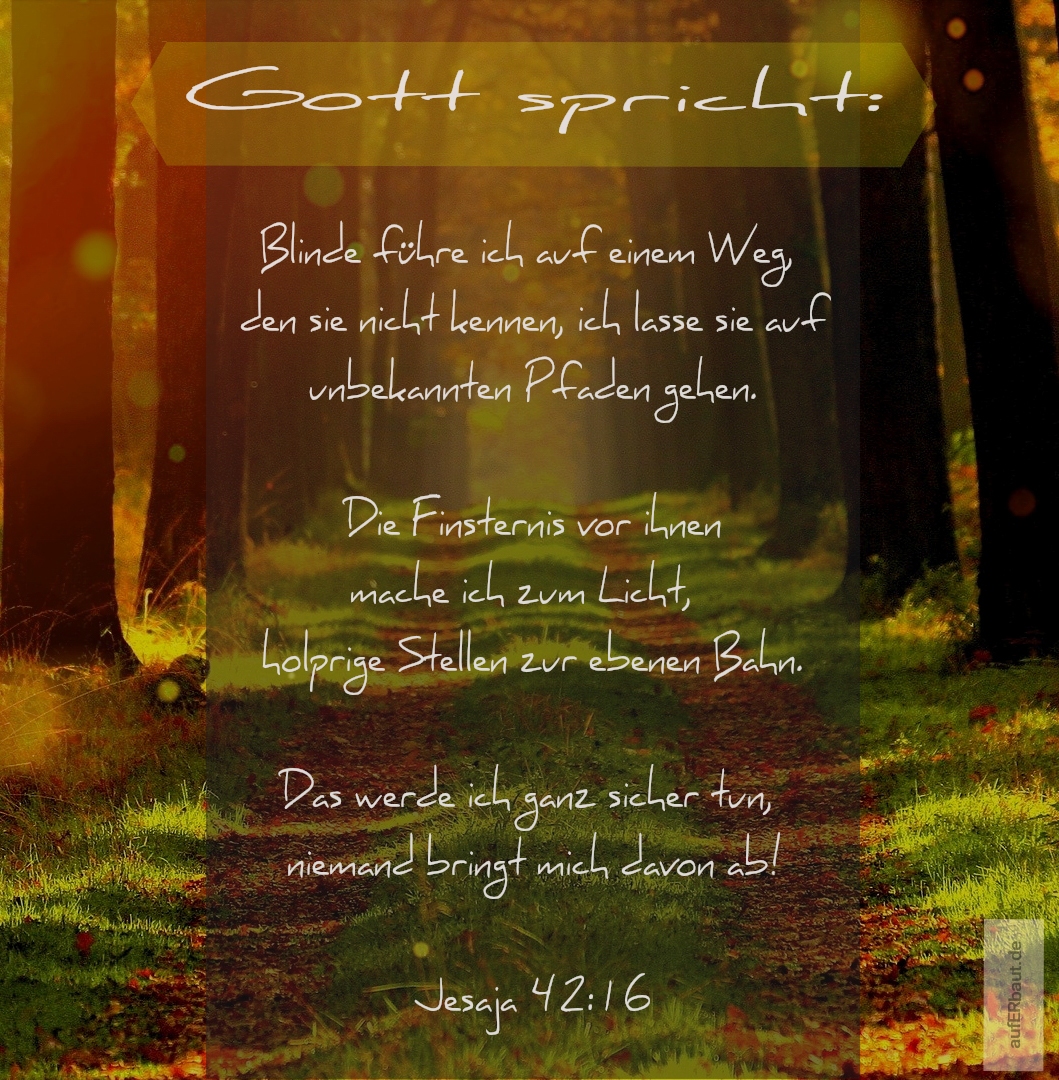 Gott spricht:
Blinde führe ich auf einem Weg,
den sie nicht kennen, ich lasse sie auf
unbekannten Pfaden gehen.
Die Finsternis vor ihnen
mache ich zum Licht,
holprige Stellen zur ebenen Bahn.
Das werde ich ganz sicher tun,
niemand bringt mich davon ab!
Jesaja 42:16
aufERbaut.de